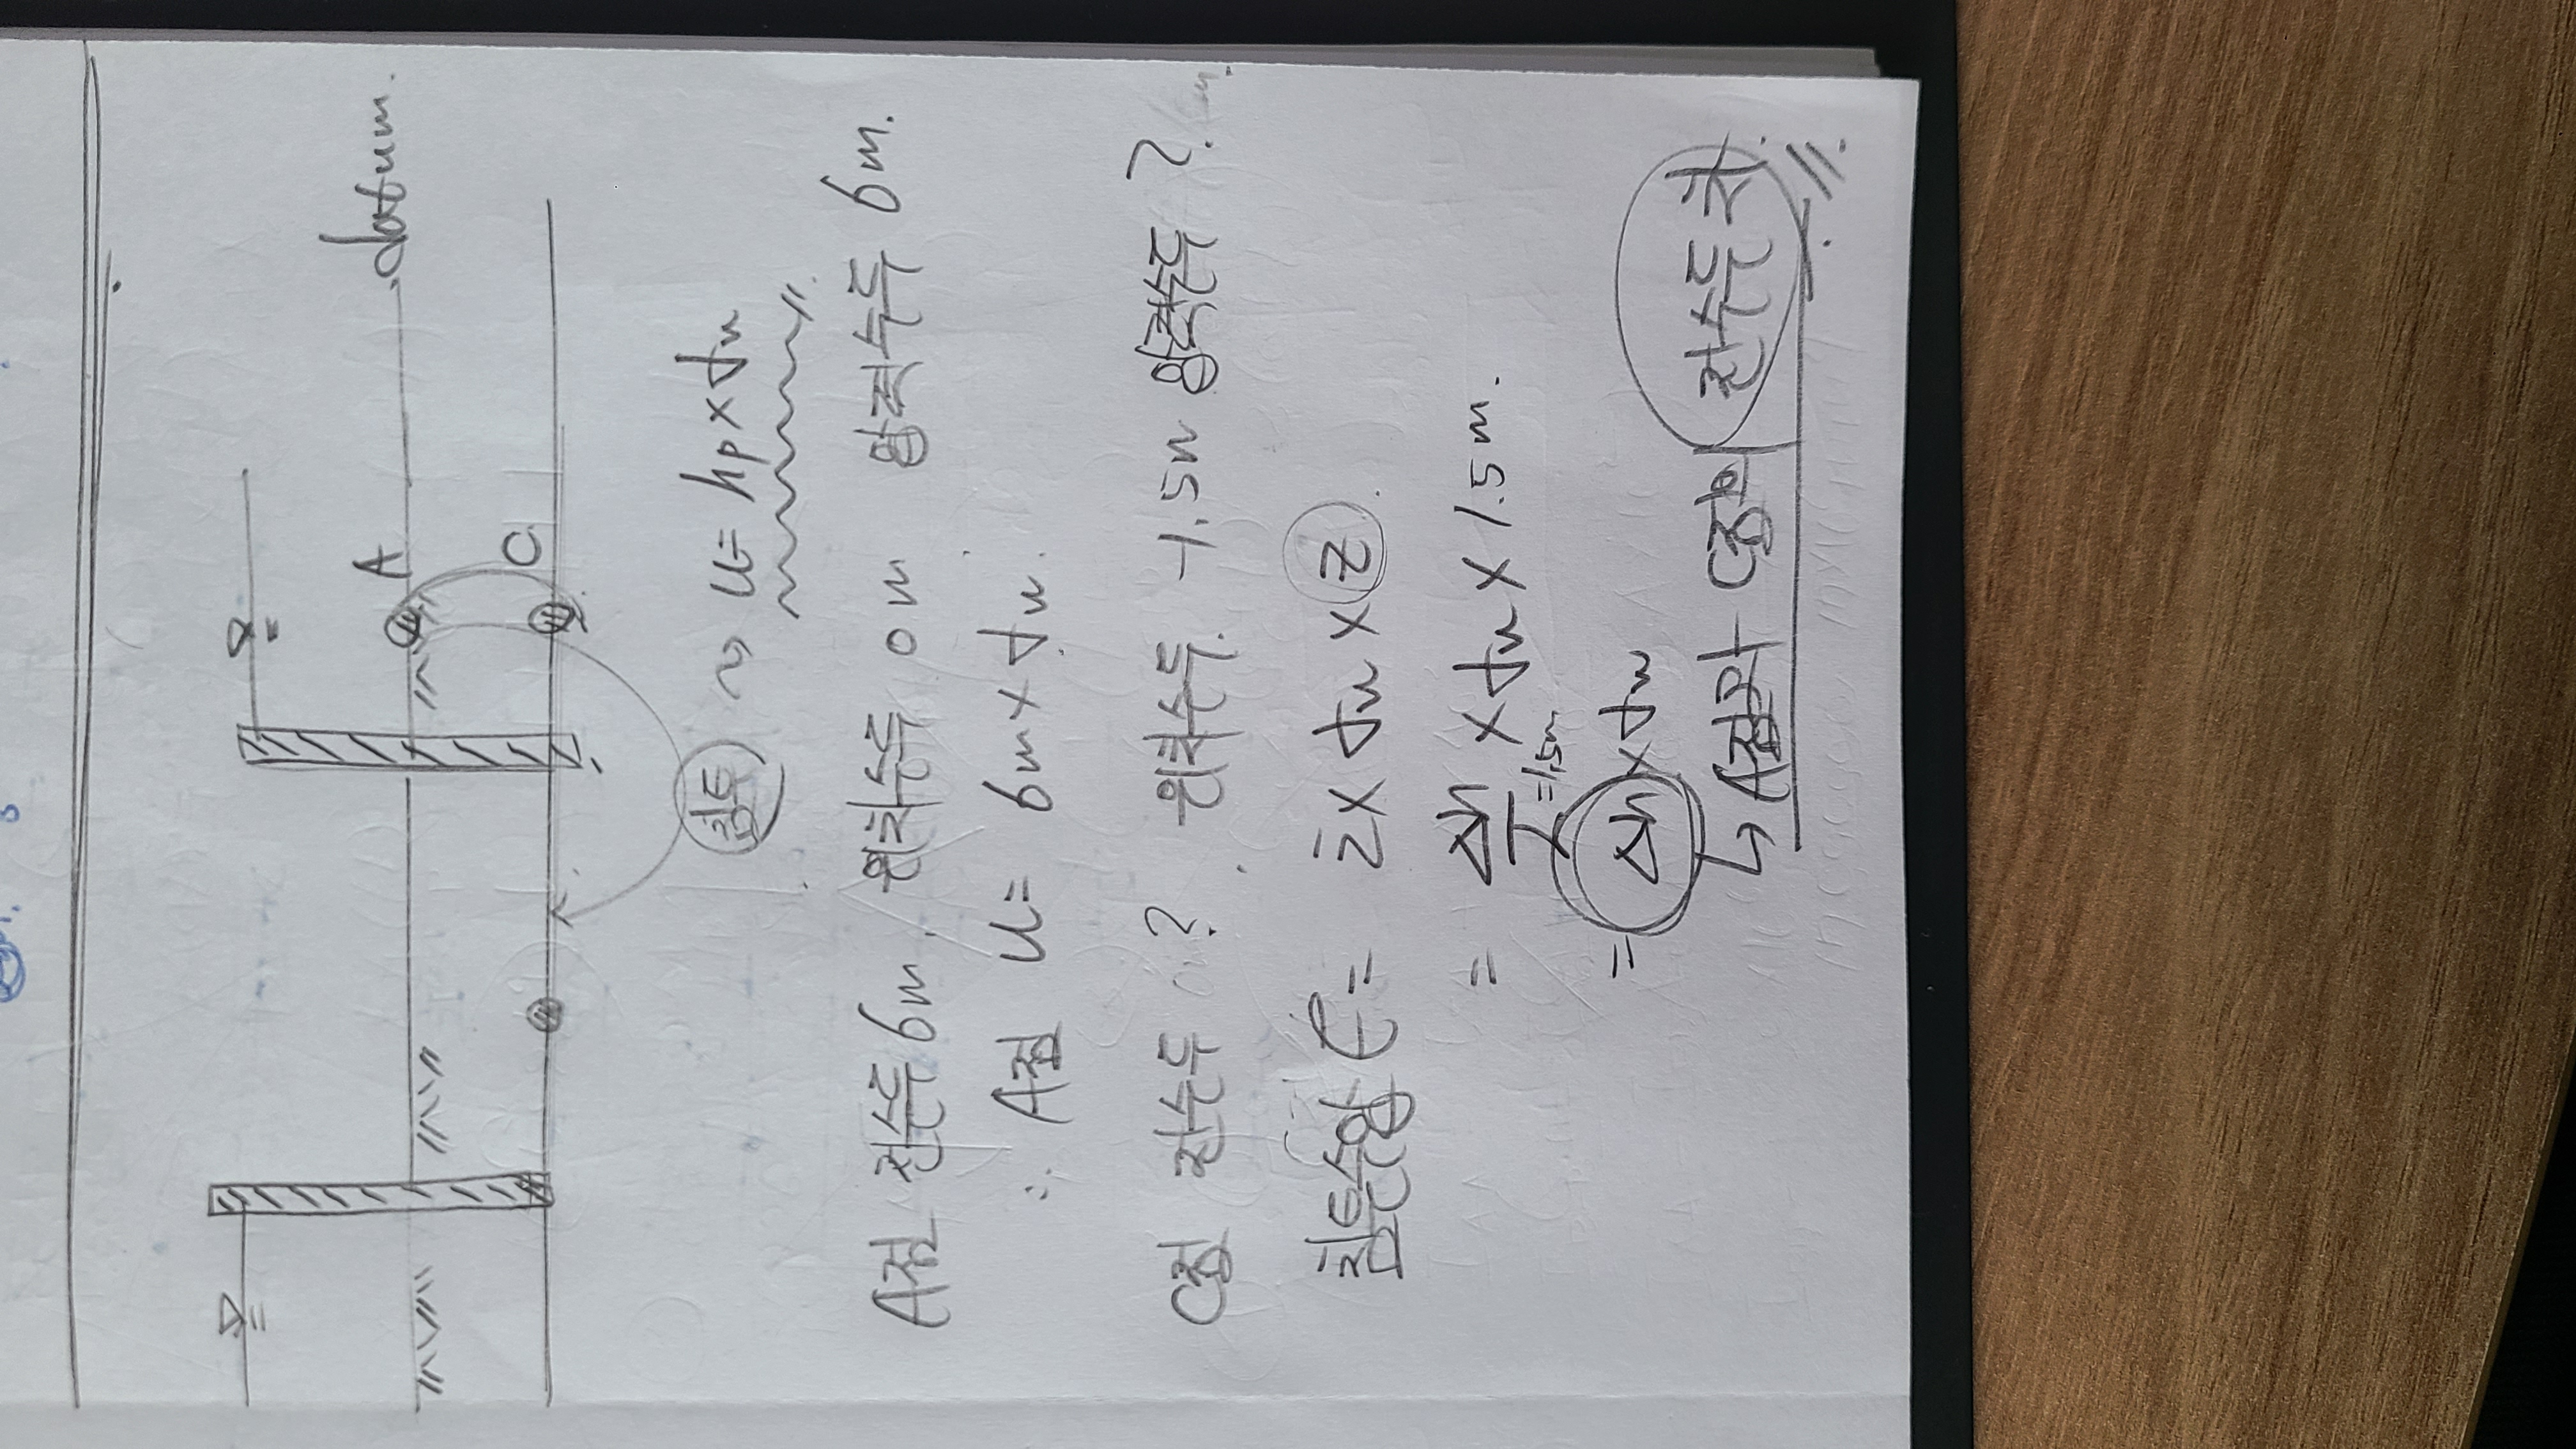 datum.
A
C
침투 ~ u = hp × γw
A점 전수두 6m. 위치수두 0m 압력수두 6m.
∴ A점 u = 6m × γw.
C점 전수두? 위치수두. -1.5m 압력수두?
침투수압 F = i × γw × z.
= Δh/1.5m × γw × 1.5m.
= Δh × γw
↳ A점과 C점의 전수두차.